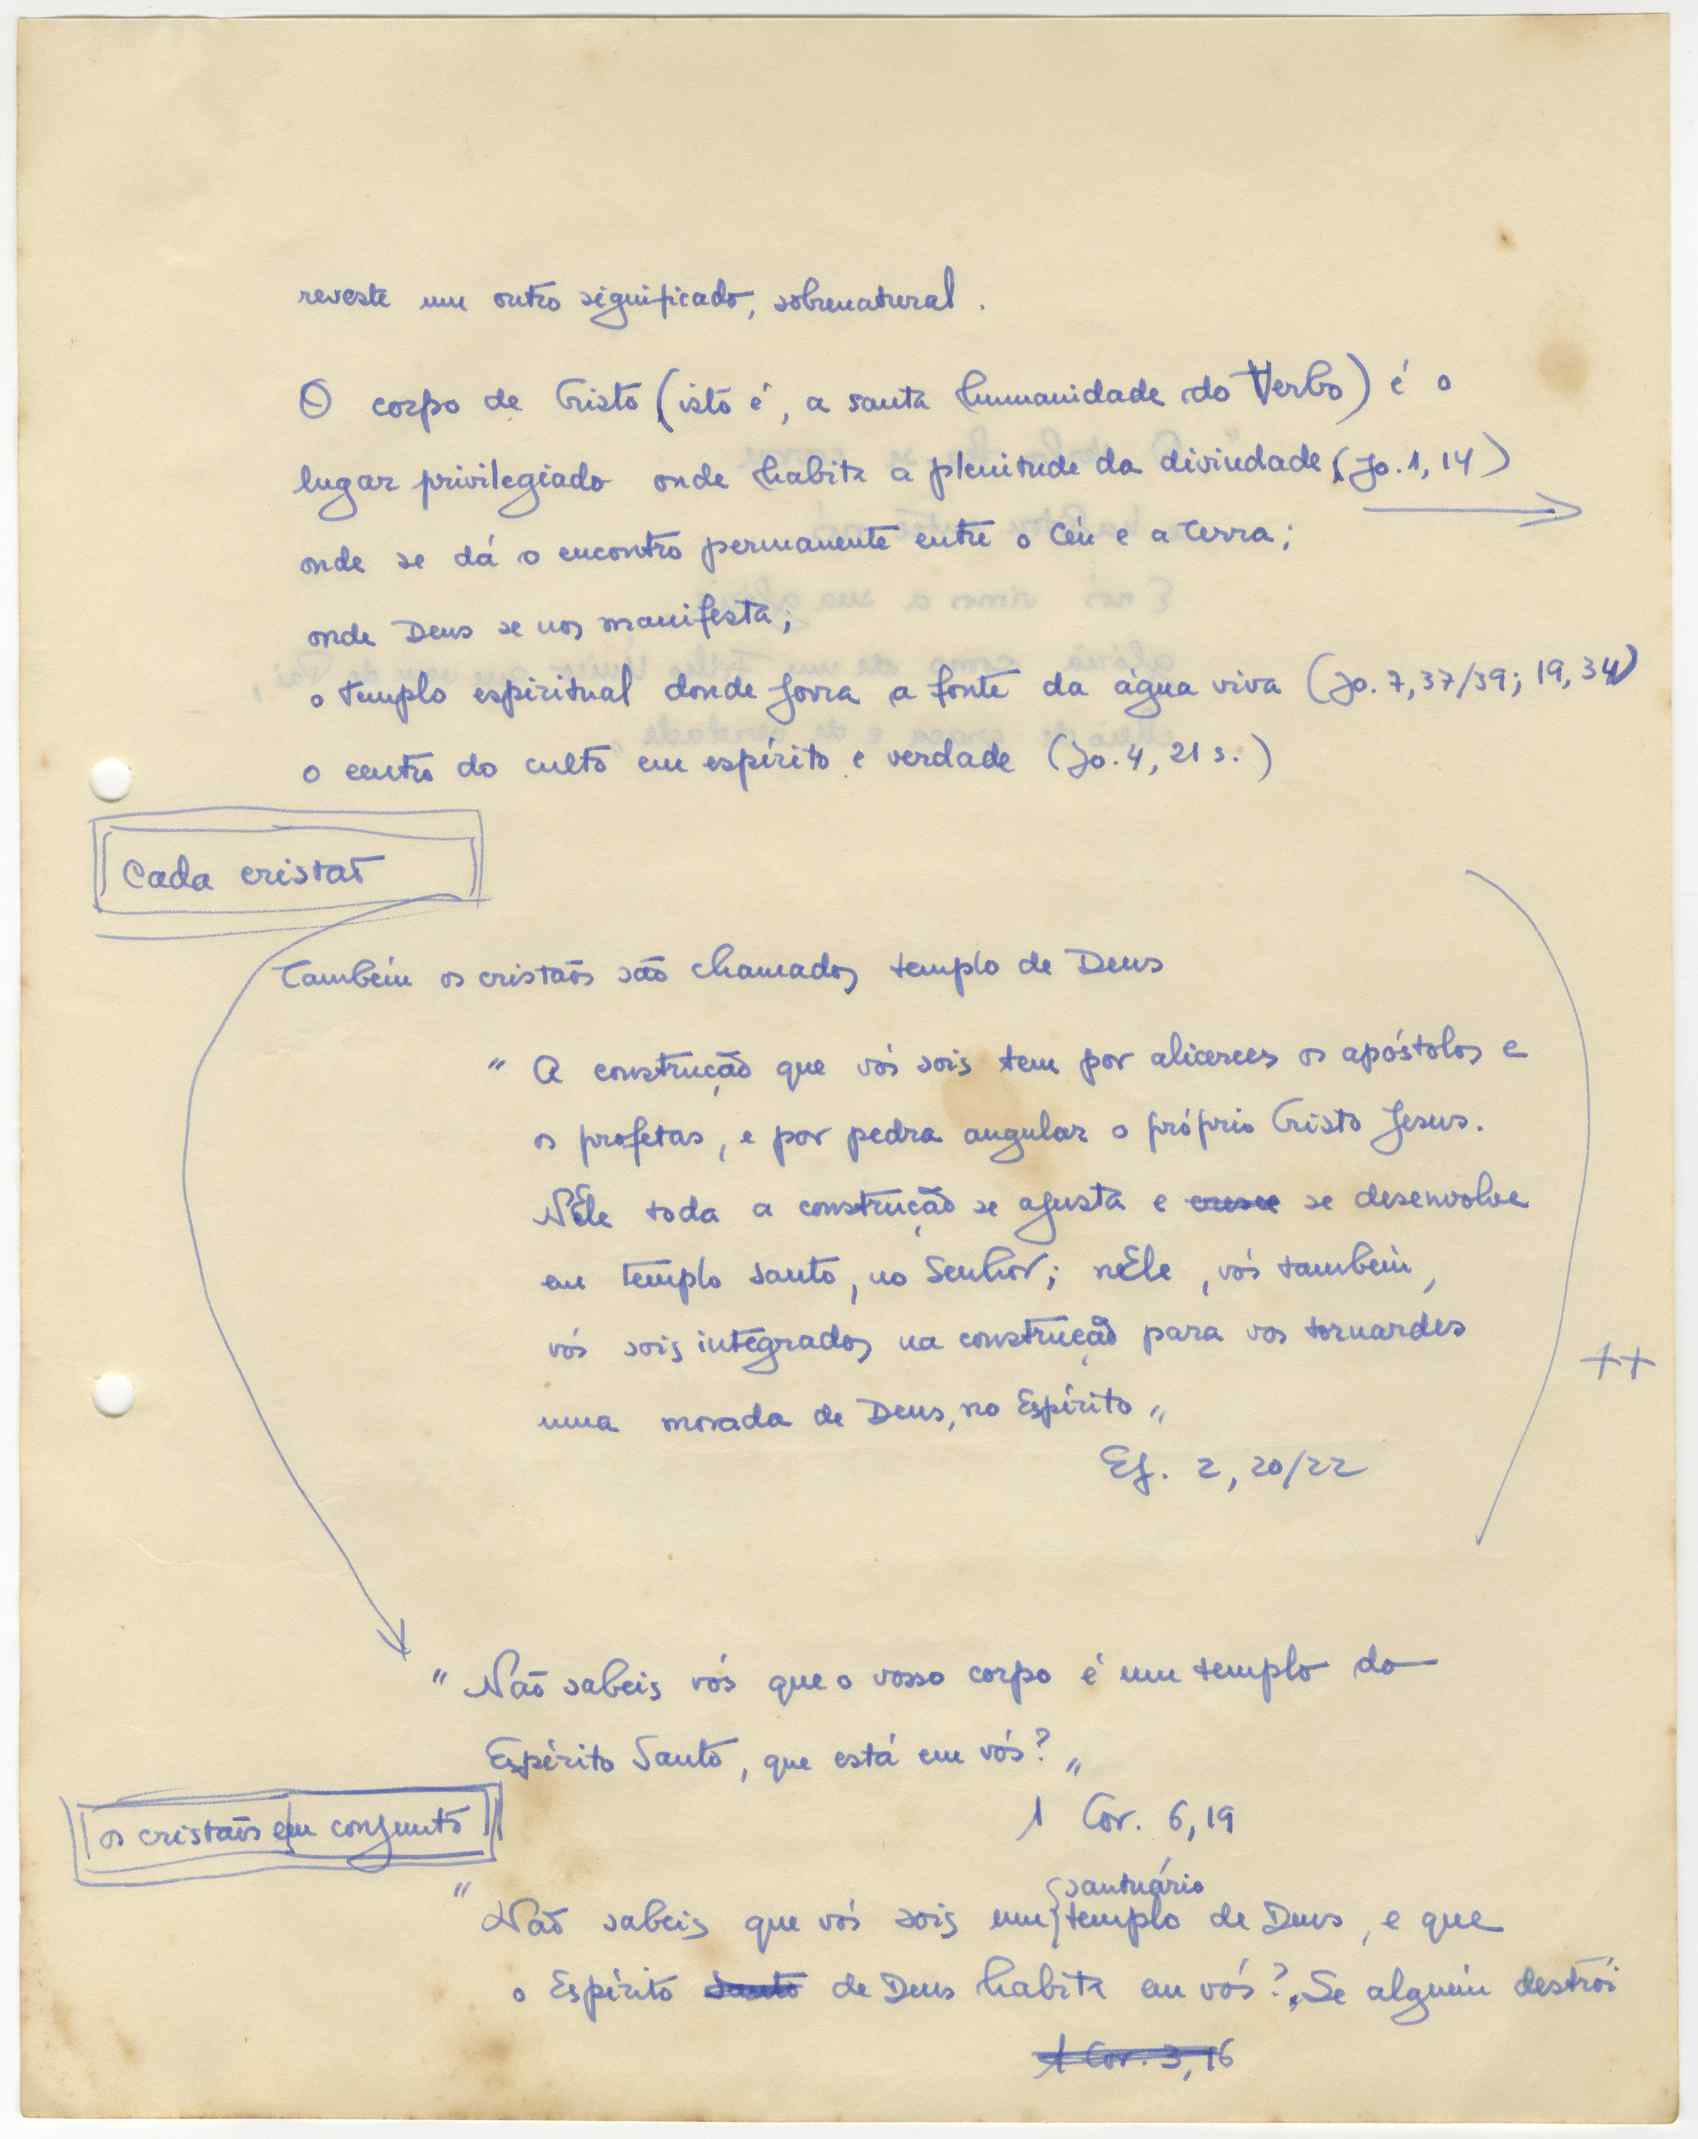 reveste um outro significado, sobrenatural.
O corpo de Cristo (isto é, a santa humanidade do Verbo) é o
lugar privilegiado onde habita a plenitude da divindade (Jo. 1, 14)
onde se dá o encontro permanente entre o Céu e a Terra;
onde Deus se nos manifesta;
o templo espiritual donde jorra a fonte da água viva (Jo. 7, 37/39; 19, 34)
o centro do culto em espírito e verdade (Jo. 4, 21 s.)
Cada cristão
Também os cristãos são chamados templo de Deus
"A construção que vós sois tem por alicerces os apóstolos e
os profetas, e por pedra angular o próprio Cristo Jesus.
NEle toda a construção se ajusta e cresce se desenvolve
em templo santo, no Senhor; nEle, vós também,
vós sois integrados na construção para vos tornardes
++
uma morada de Deus, no Espírito"
Ef. 2, 20/22
"Não sabeis vós que o vosso corpo é um templo do
Espírito Santo, que está em vós?"
1 Cor. 6, 19
os cristãos em conjunto
santuário
"Não sabeis que vós sois um templo de Deus, e que
o Espírito Santo de Deus habita em vós? Se alguém destrói
1 Cor. 3, 16